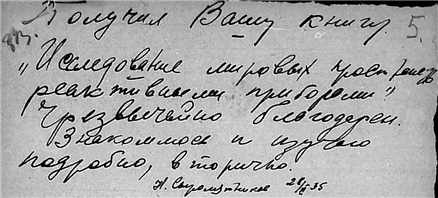 Получил Вашу книгу 5.
„Исследование мировых пространств
реактивными приборами”
Чрезвычайно благодарен.
Знакомлюсь и изучаю
подробно, вторично.
28/II 35